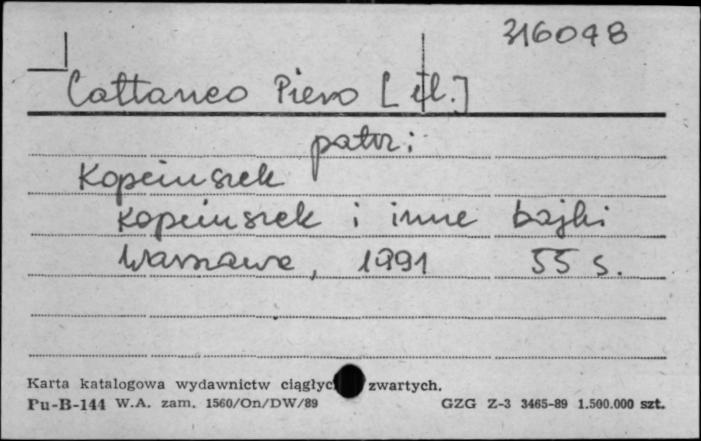 316098
Cattaneo Piero [il.]
patrz:
Kopciuszek
Kopciuszek i inne bajki
Warszawa, 1991 55 s.
Karta katalogowa wydawnictw ciągłyc zwartych.
Pu-B-144 W.A. zam. 1560/On/DW/89 GZG Z-3 3465-89 1.500.000 szt.